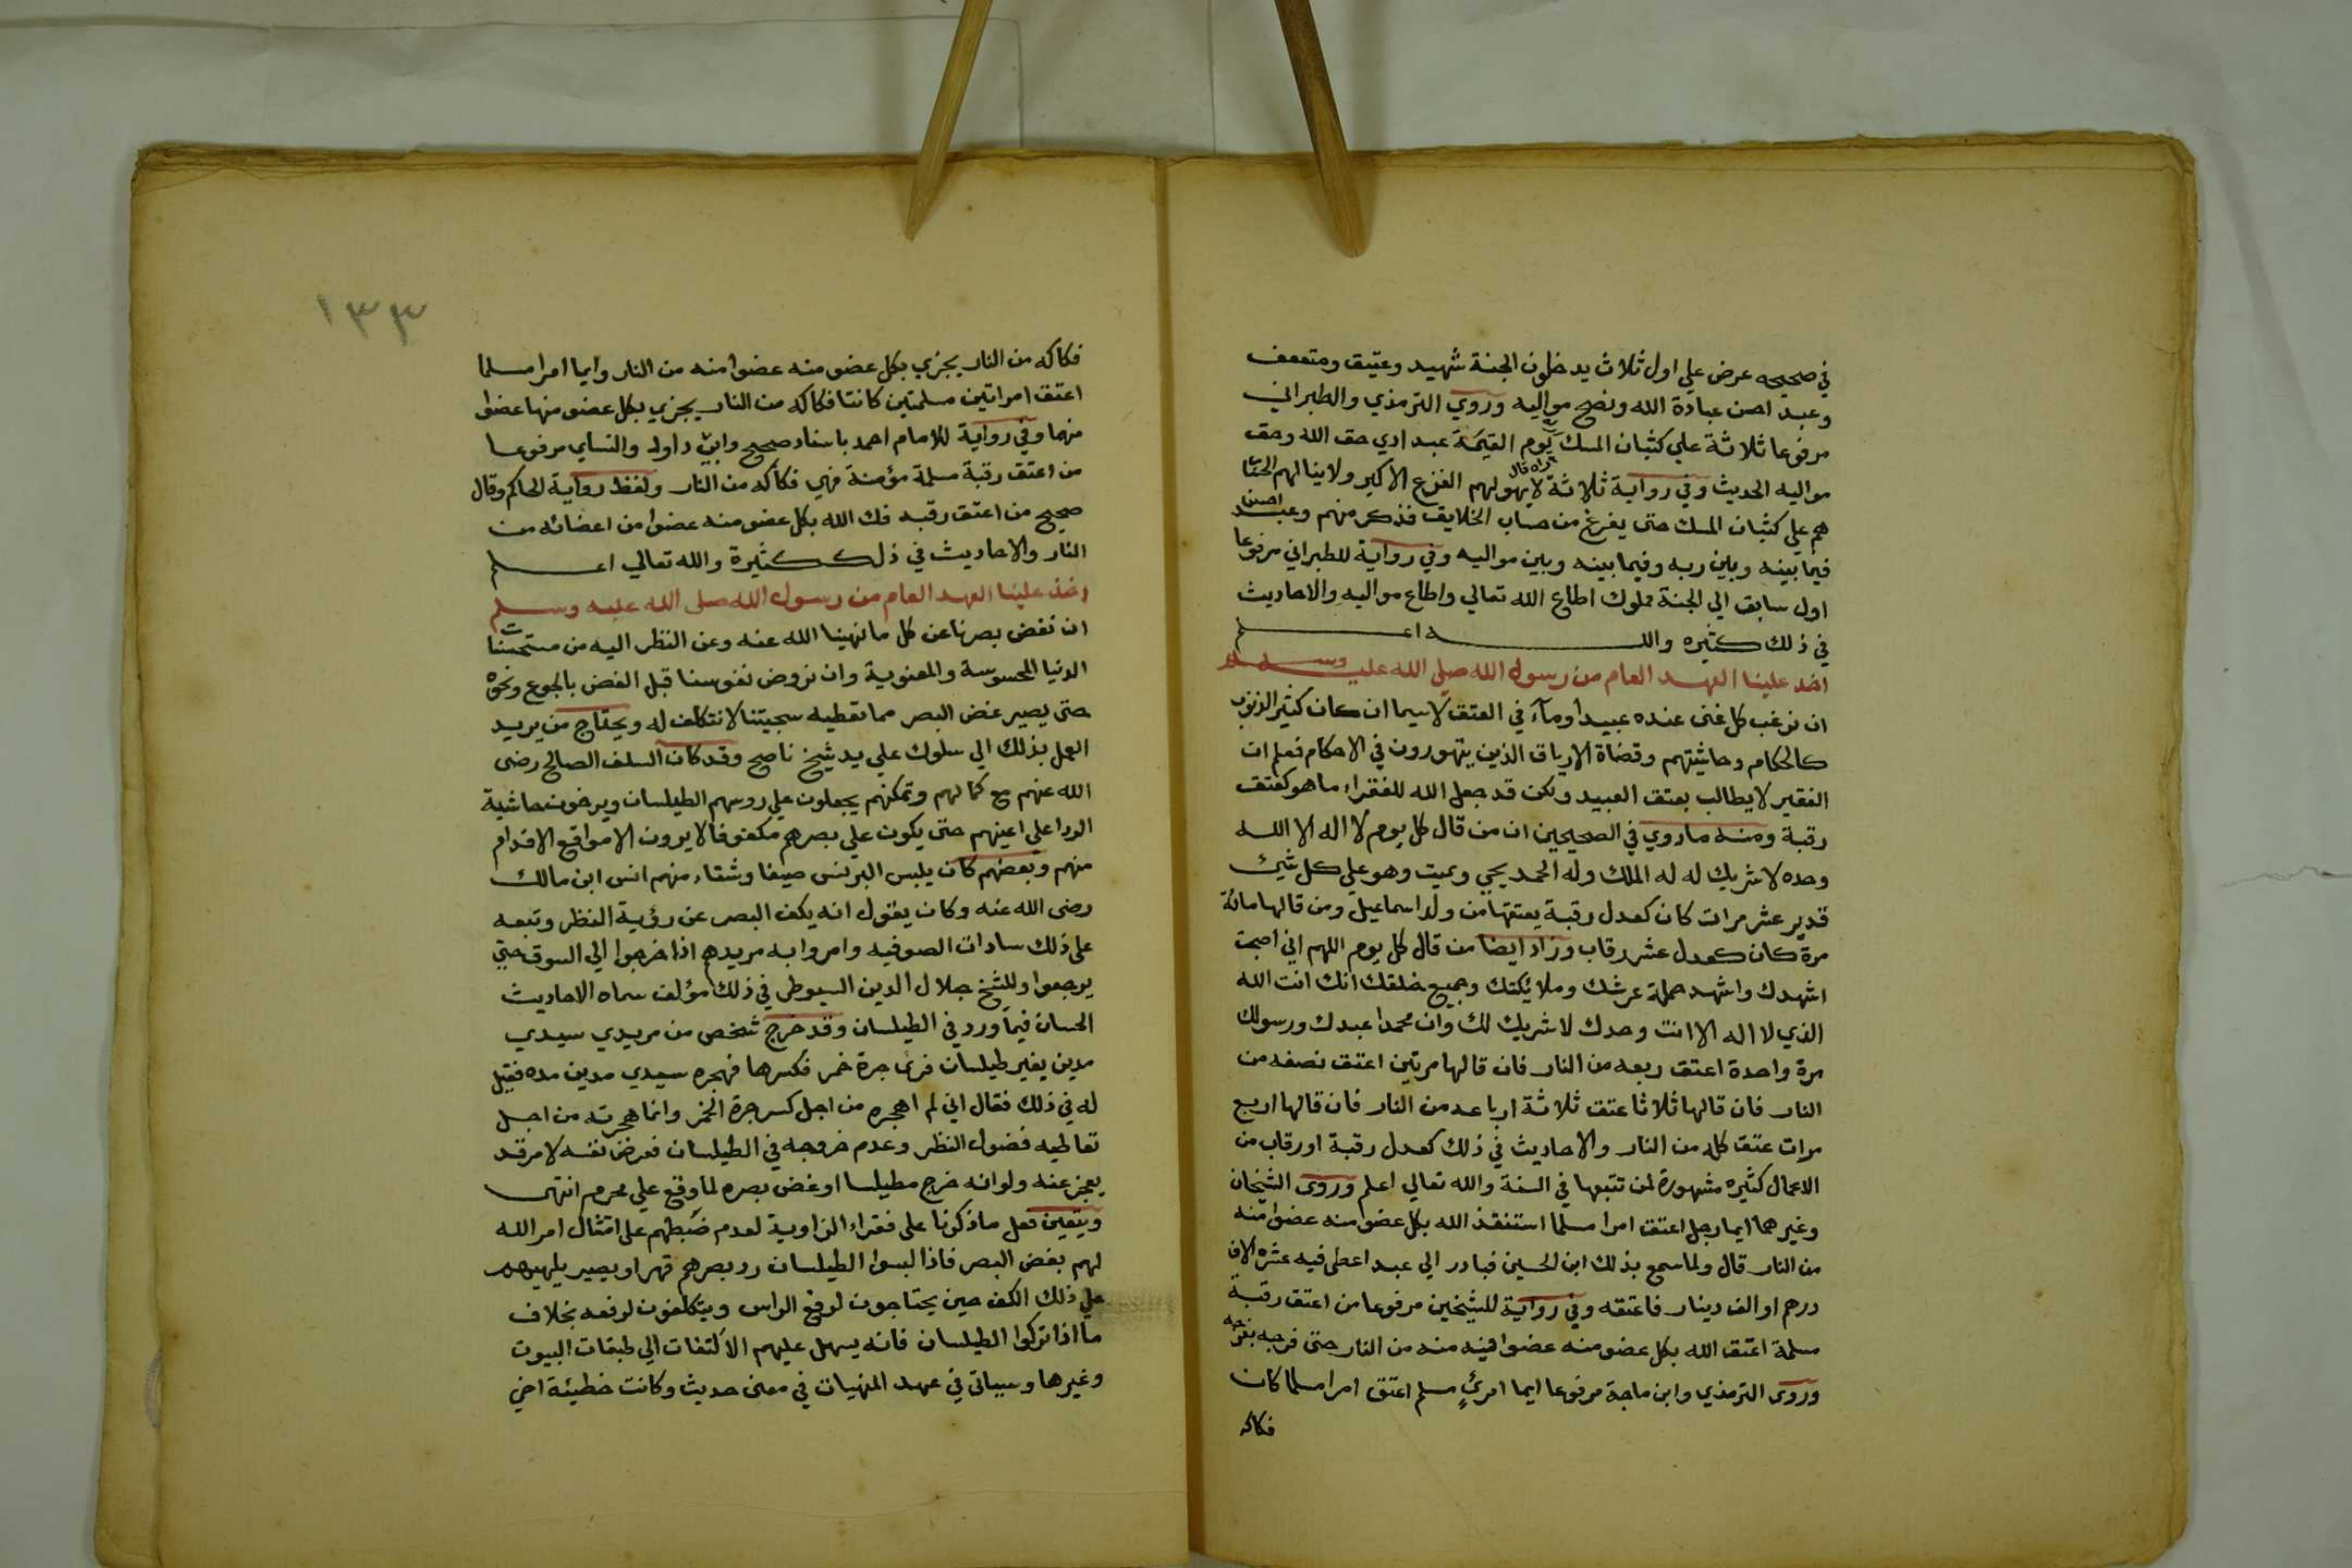 في صحيحه عرض علي اول ثلاث يدخلون الجنة شهيد وعتيق ومتعفف
وعبد احسن عبادة الله ونصح مواليه وروي الترمذي والطبراني
مرفوعا ثلاثة علي كثبان المسك يوم القيمة عبد ادي حق الله وحق
مواليه الحديث وفي رواية ثلاثة لا يهولهم الفزع الاكبر ولا ينالهم الحساب
هم علي كثبان المسك حتى يفرغ من حساب الخلايق فذكر منهم وعبد احسن
فيما بينه وبين ربه وفيما بينه وبين مواليه وفي رواية للطبراني مرفوعا
اول سابق الي الجنة مملوك اطاع الله تعالي واطاع مواليه والاحاديث
في ذلك كثيره والله اعلم
اخذ علينا العهد العام من رسول الله صلي الله عليه وسلم
ان نرغب كل غنى عنده عبيد او مآء في العتق لا سيما ان كان كثير الذنوب
كالحكام وحاشيتهم وقضاة الارياف الذين يتهورون في الاحكام فعلم ان
الفقير لا يطالب بعتق العبيد ولكن قد جعل الله للفقراء ما هو كعتق
رقبة ومنه ما روي في الصحيحين ان من قال كل يوم لا اله الا الله
وحده لا شريك له له الملك وله الحمد يحي ويميت وهو علي كل شيئ
قدير عشر مرات كان كعدل رقبة يعتقها من ولد اسماعيل ومن قالها مائة
مرة كان كعدل عشر رقاب وزاد ايضا من قال كل يوم اللهم اني اصبحت
اشهدك واشهد حملة عرشك وملائكتك وجميع خلقك انك انت الله
الذي لا اله الا انت وحدك لا شريك لك وان محمدا عبدك ورسولك
مرة واحدة اعتق ربعه من النار فان قالها مرتين اعتق نصفه من
النار فان قالها ثلاثا عتق ثلاثة ارباعه من النار فان قالها اربع
مرات عتق كله من النار والاحاديث في ذلك كعدل رقبة او رقاب من
الاعمال كثيره مشهورة لمن تتبعها في السنة والله تعالي اعلم وروى الشيخان
وغيرهما ايما رجل اعتق امرا مسلما استنقذ الله بكل عضو منه عضوا منه
من النار قال ولما سمع بذلك ابن الحسين فبادر الي عبد اعطى فيه عشره الاف
درهم او الف دينار فاعتقه وفي رواية للشيخين مرفوعا من اعتق رقبة
مسلمة اعتق الله بكل عضو منه عضوا فيه منه من النار حتى فرجه بفرجه
وروى الترمذي وابن ماجة مرفوعا ايما امرئ مسلم اعتق امرا مسلما كان
فكاكه
١٣٣
فكاكه من النار يجزي بكل عضو منه عضوا منه من النار وايما امرا مسلما
اعتق امراتين مسلمتين كانتا فكاكه من النار يجزي بكل عضو منها عضوا
منهما وفي رواية للامام احمد باسناد صحيح وابي داود والنساي مرفوعا
من اعتق رقبة مسلمة مؤمنة فهي فكاكه من النار ولفظ رواية الحاكم وقال
صحيح من اعتق رقبه فك الله بكل عضو منه عضوا من اعضائه من
النار والاحاديث في ذلك كثيرة والله تعالي اعلم
اخذ علينا العهد العام من رسول الله صلى الله عليه وسلم
ان نغض بصرنا عن كل ما نهينا الله عنه وعن النظر اليه من مستحسنات
الدنيا المحسوسة والمعنوية وان نروض نفوسنا قبل الغض بالجوع ونحوه
حتى يصير غض البصر مما نعطيه سجيتنا لا نتكلف له ويحتاج من يريد
العمل بذلك الي سلوك علي يد شيخ ناصح وقد كان السلف الصالح رضى
الله عنهم مع كمالهم وتمكنهم يجعلون علي روسهم الطيلسان ويرخون حاشية
الردا على اعينهم حتى يكون علي بصرهم مكفوفا لا يرون الا مواقع الاقدام
منهم وبعضهم كان يلبس البرنس صيفا وشتاء منهم انس ابن مالك
رضى الله عنه وكان يقول انه يكف البصر عن رؤية النظر وتبعه
على ذلك سادات الصوفيه وامروا به مريدهم اذا خرجوا الي السوق حتي
يرجعوا وللشيخ جلال الدين السيوطى في ذلك مؤلف سماه الاحاديث
الحسان فيما ورد في الطيلسان وقد خرج شخص من مريدي سيدي
مدين بغير طيلسان فرئ جرة خمر فكسرها فهجره سيدي مدين مده فقيل
له في ذلك فقال اني لم اهجره من اجل كسر جرة الخمر وانما هجرته من اجل
تعاطيه فضول النظر وعدم خروجه في الطيلسان فعرض نفسه لامر قد
يعجز عنه ولو انه خرج مطيلسا او غض بصره لما وقع علي محرم انتهى
ويتعين فعل ما ذكرنا على فقراء الزاوية لعدم ضبطهم على امتثال امر الله
لهم بغض البصر فاذا لبسوا الطيلسان رد بصرهم قهرا ويصير يلهيهم
علي ذلك الكف حين يحتاجون لرفع الراس ويتكلفون لرفعه بخلاف
ما اذا تركوا الطيلسان فانه يسهل عليهم الالتفات الي طبقات البيوت
وغيرها وسياتى في عهد المنهيات في معنى حديث وكانت خطيئة اخي